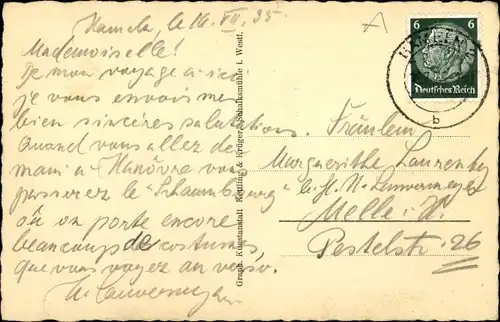 Hameln, le 16. VII. 35.
Mademoiselle!
De mon voyage a-ici
je vous envois mes
bien sincères salutations.
Quand vous allez de-
main a-Hanôvre vous
passerez le "Schaumburg"
où on porte encore
beaucoup de costumes,
que vous voyez au verso.
Graph. Kunstanstalt Kettling & Krüger, Schalksmühle i. Westf.
6 6
Deutsches Reich
HAMELN
b
Fräulein
Marguerithe
b. H. N.
Melle i. H.
Pestelstr. 26